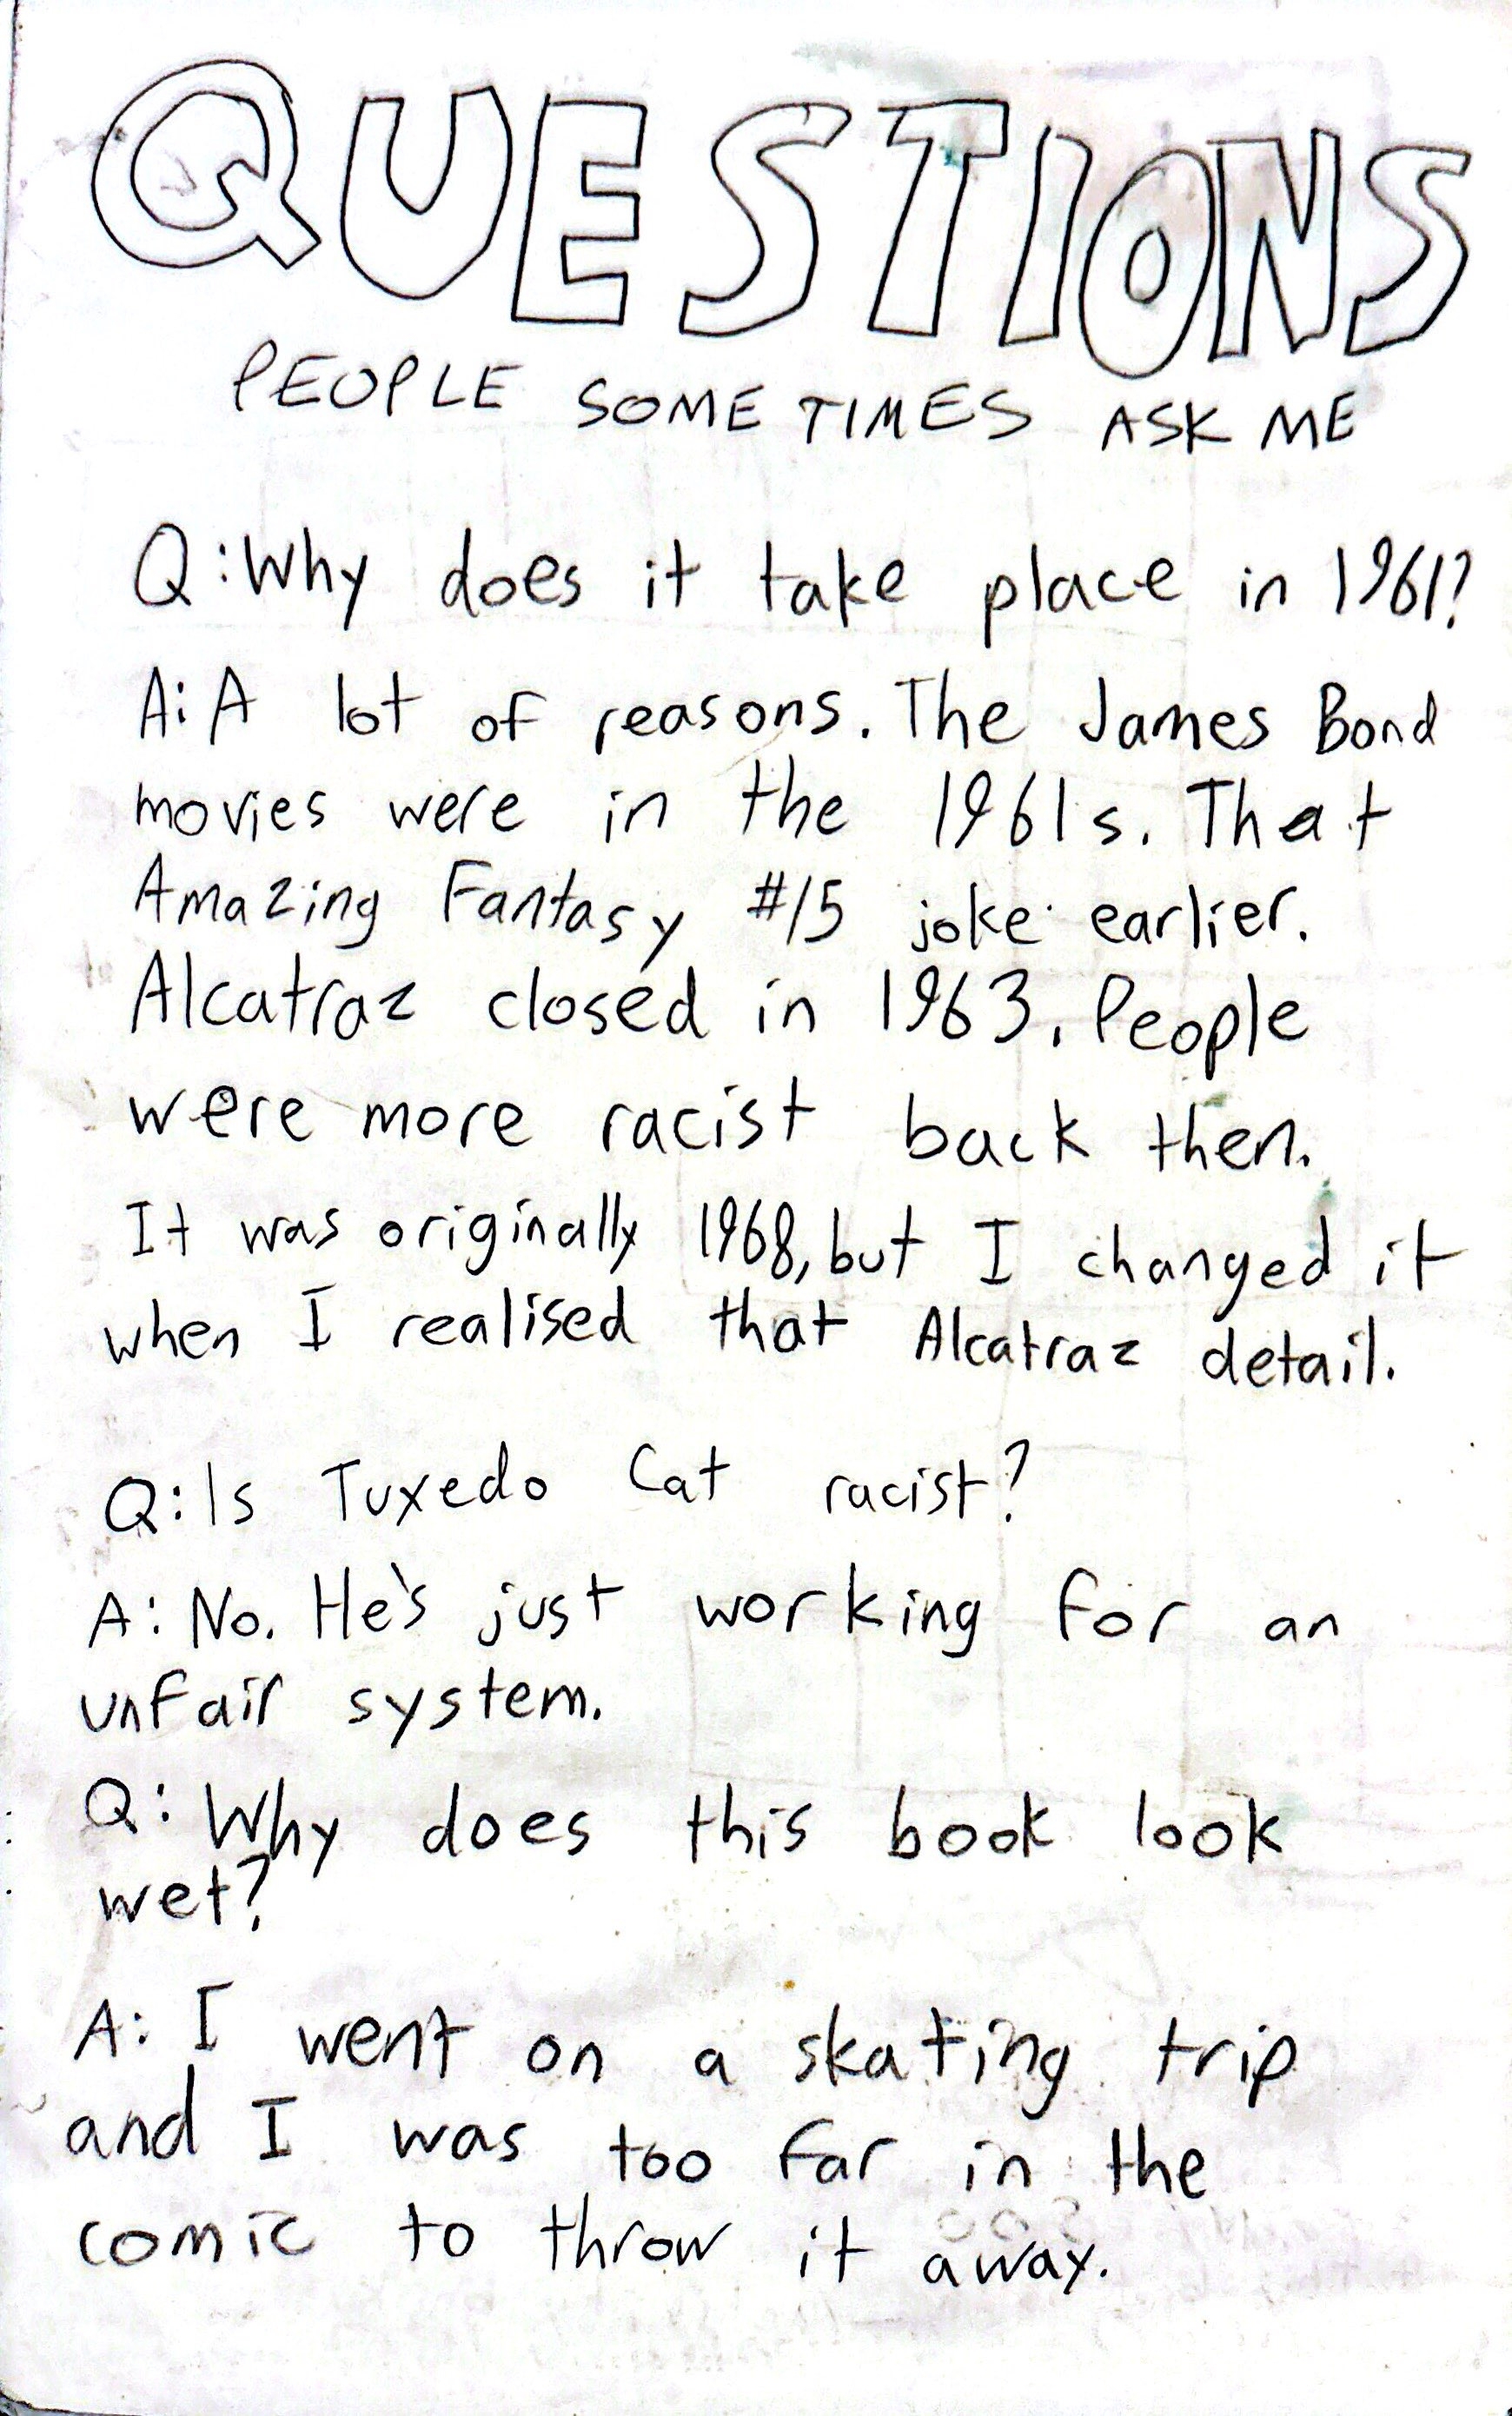 QUESTIONS
PEOPLE SOMETIMES ASK ME
Q: Why does it take place in 1961?
A: A lot of reasons. The James Bond
movies were in the 1961s. That
Amazing Fantasy #15 joke earlier.
Alcatraz closed in 1963. People
were more racist back then.
It was originally 1968, but I changed it
when I realised that Alcatraz detail.
Q: Is Tuxedo Cat racist?
A: No. He's just working for an
unfair system.
Q: Why does this book look
wet?
A: I went on a skating trip
and I was too far in the
comic to throw it away.